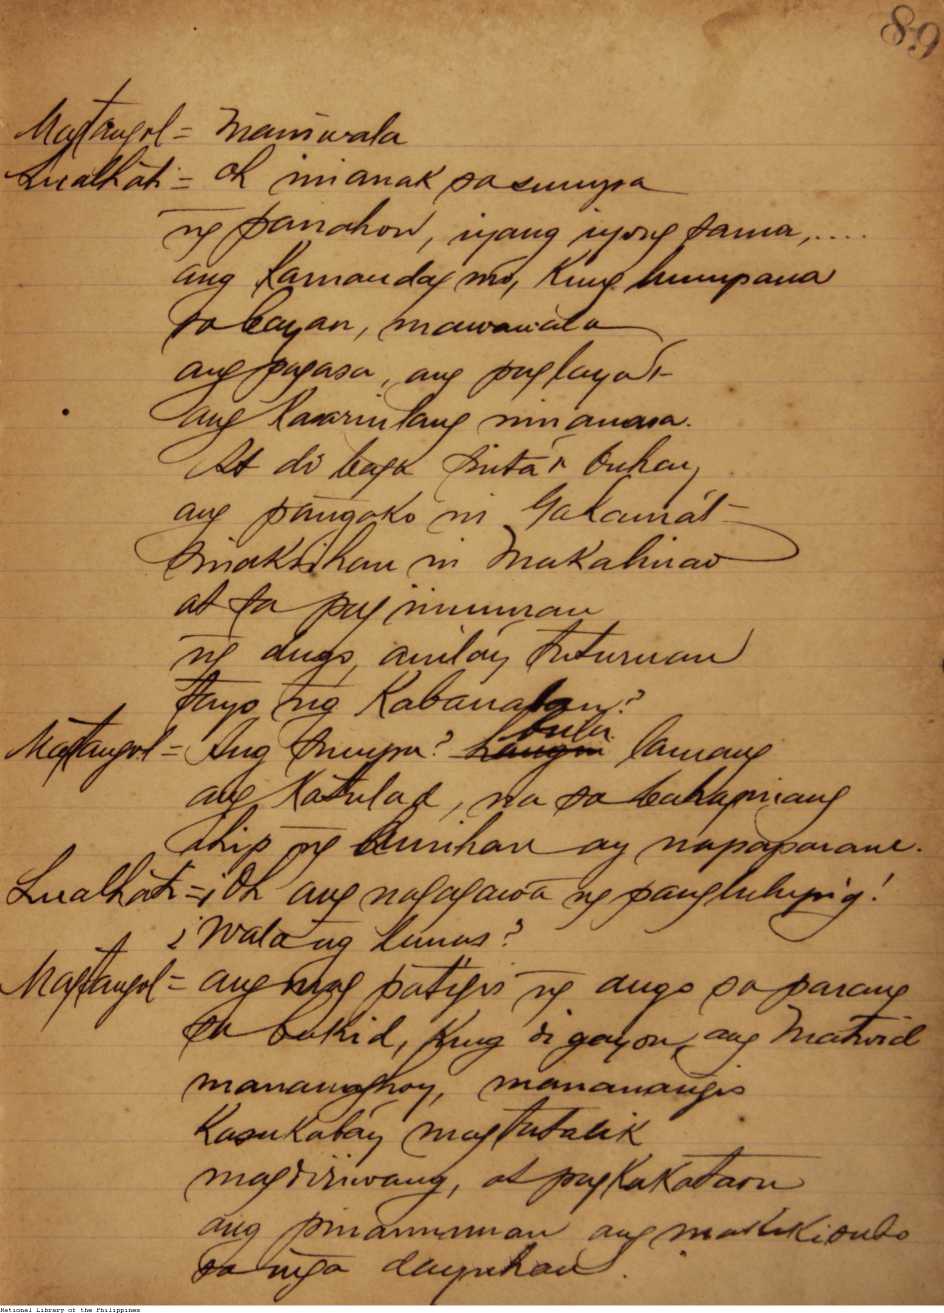 89
Magtangol = Maniwala
Lualhati = Oh inianak sa sumpa
ng panahon, iyang iyong sama,....
ang kamandag mo, kung humpana
sa bayan, mawawala
ang pagasa, ang paglaya't
ang kasarinlang ninanasa.
At di baga sinta'n buhay,
ang pangako ni Galamát
sinaksihan ni Makalinao
at sa pag inuman
ng dugo, anilay tuturuan
tayo ng Kabanalan?
Magtangol = Ang sumpa? bula lamang
ang katulad, na sa bahagniang
ihip ng amihan ay napaparam.
Lualhati = ¡Oh ang nagagawa ng panglulupig!
¿Wala ng lunas?
Magtangol = ang mag patigis ng dugo sa parang
sa bukid, kung di gayon, ang Matwid
mananaghoy, mananangis
kasukabay magtatalik
magdiriwang, at pagkakataon
ang ang makikisulo
sa mga dayuhan.
National Library of the Philippines